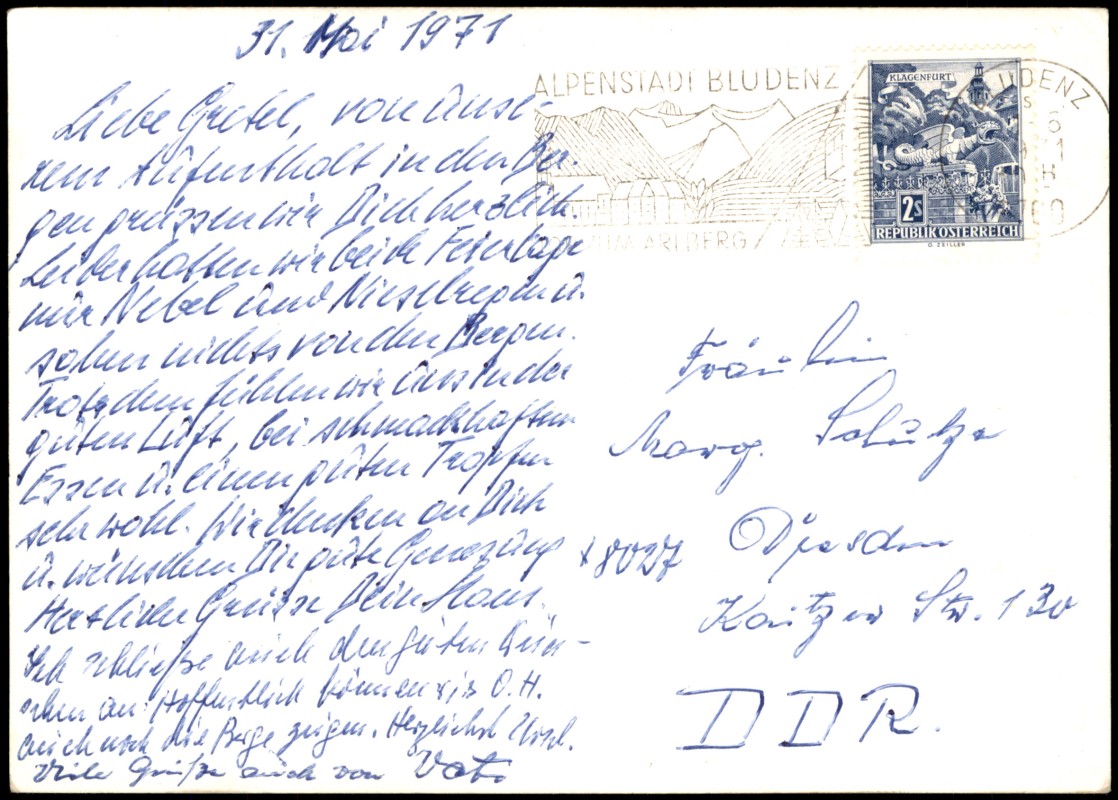 31. Mai 1971
Liebe Gretel, von unse-
rem Aufenthalt in den Ber-
gen grüssen wir Dich herzlich.
Leider hatten wir beide Feiertage
nur Nebel und Nieselregen u.
sahen nichts von den Bergen.
Trotzdem fühlen wir uns in der
guten Luft, bei schmackhaftem
Essen u. einem guten Tropfen
sehr wohl. Wir denken an Dich
u. wünschen Dir gute Genesung
Herzliche Grüsse Dein Hans.
Ich schließe auch den guten Wün-
schen an. Hoffentlich können wir O. H.
auch noch die Berge zeigen. Herzlichst Ursel.
Viele Grüße auch von Vati
ALPENSTADT BLUDENZ
AM ARLBERG
BLUDENZ
KLAGENFURT
2s
REPUBLIK ÖSTERREICH
O. ZEILLER
Fräulein
Marg. Schulze
x 8027 Dresden
Kaitzer Str. 130
DDR.